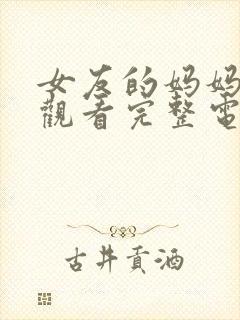 女友的妈妈
觀看完整電
古井貢酒